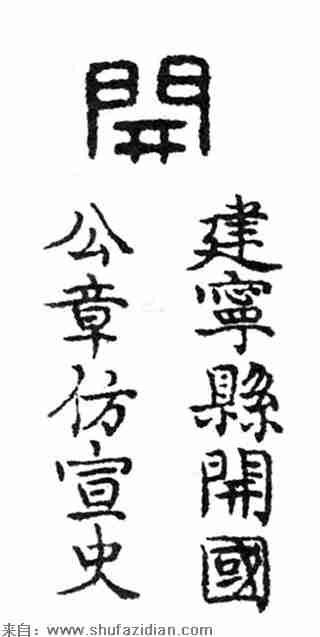 開
建寧縣開國
公章仿宣史
来自：www.shufazidian.com